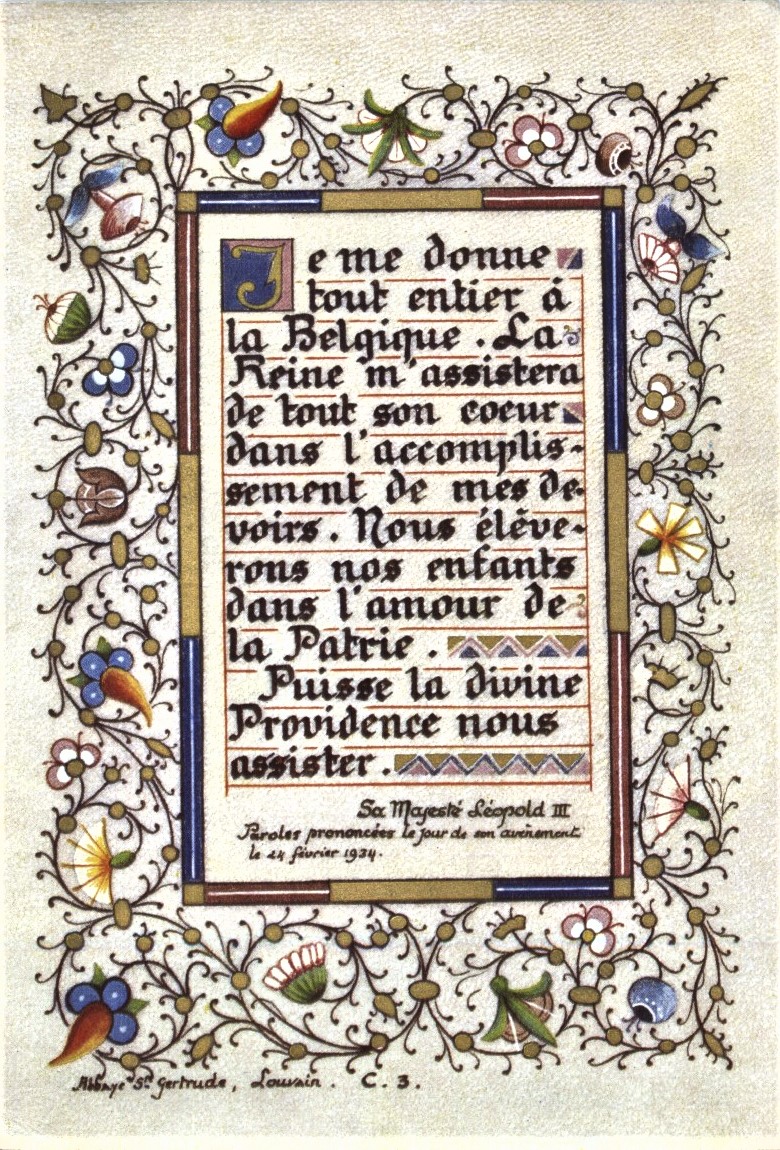 Je me donne
tout entier à
la Belgique . La
Reine m'assistera
de tout son coeur
dans l'accomplis-
sement de mes de-
voirs . Nous élève-
rons nos enfants
dans l'amour de
la Patrie .
Puisse la divine
Providence nous
assister .
Sa Majesté Léopold III
Paroles prononcées le jour de son avènement
le 24 février 1934.
Abbaye Ste Gertrude , Louvain . C. 3 .